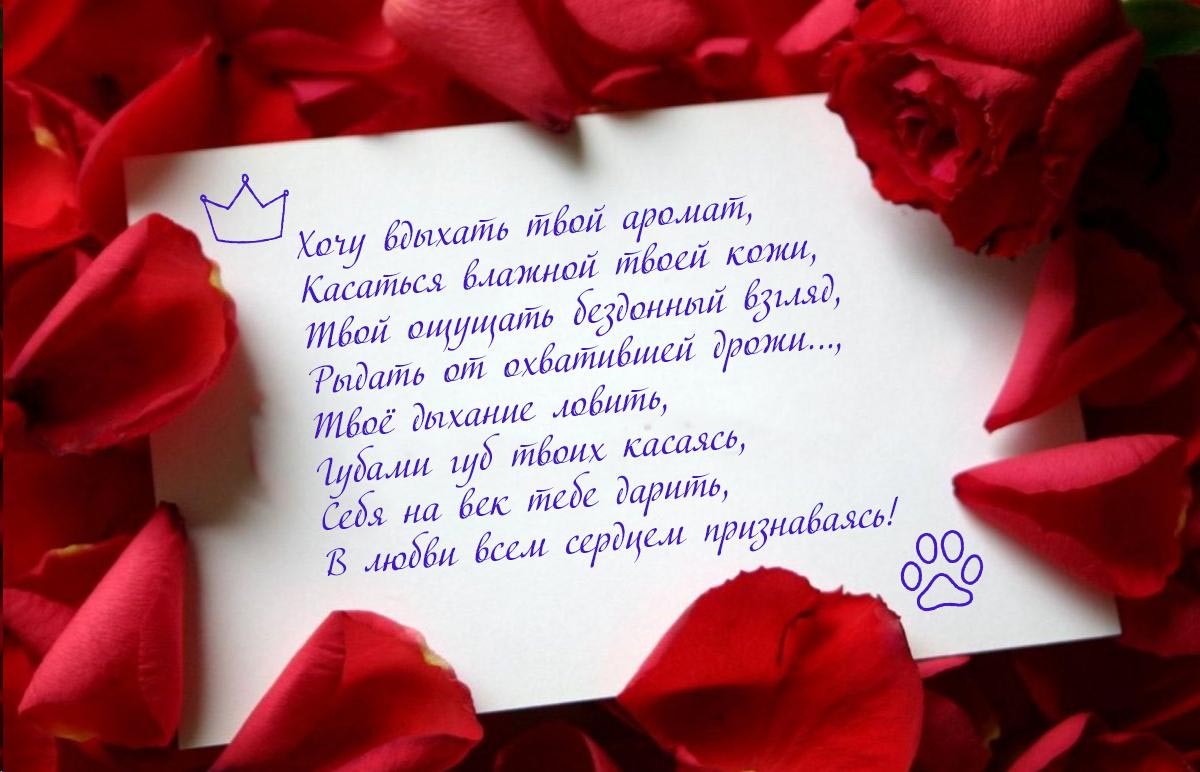 Хочу вдыхать твой аромат,
Касаться влажной твоей кожи,
Твой ощущать бездонный взгляд,
Рыдать от охватившей дрожи...,
Твоё дыхание ловить,
Губами губ твоих касаясь,
Себя на век тебе дарить,
В любви всем сердцем признаваясь!